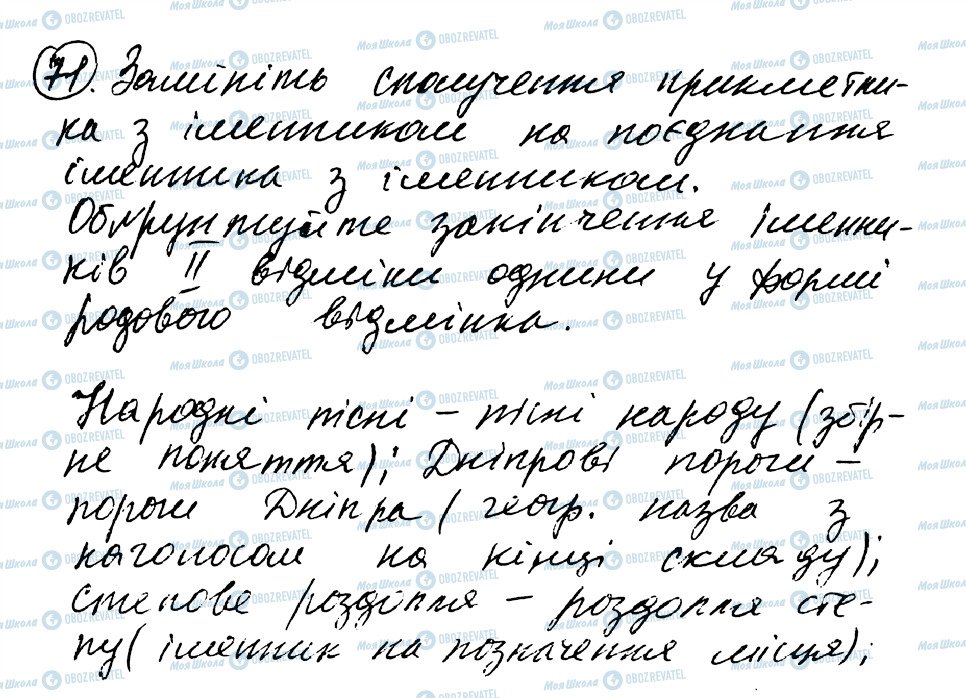 71. Замініть сполучення прикметни-
ка з іменником на поєднання
іменника з іменником.
Обґрунтуйте закінчення іменни-
ків ІІ відміни однини у формі
родового відмінка.
Народні пісні – пісні народу (збір-
не поняття); Дніпрові пороги –
пороги Дніпра (геогр. назва з
наголосом на кінці складу);
Степове роздолля – роздолля сте-
пу (іменник на позначення місця);